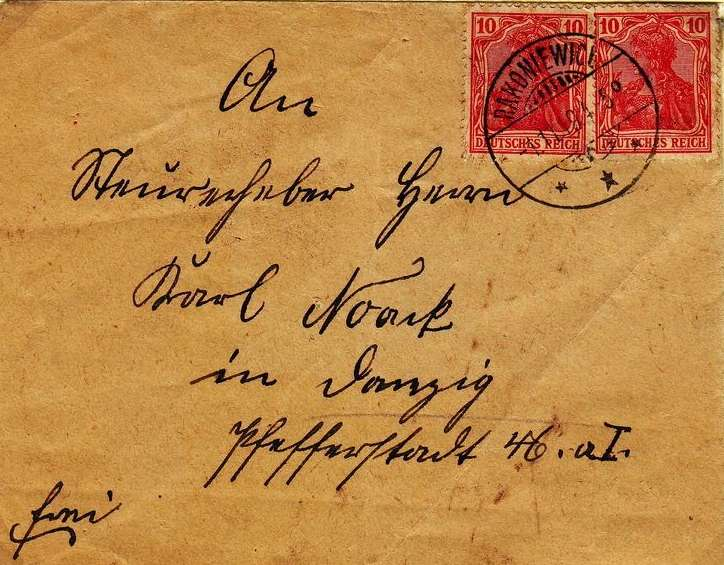 10 10 10 10
DEUTSCHES REICH DEUTSCHES REICH
RAKONIEWICE
An
Steuererheber Herrn
Karl Noack
in Danzig
Pfefferstadt 46. a I.
frei